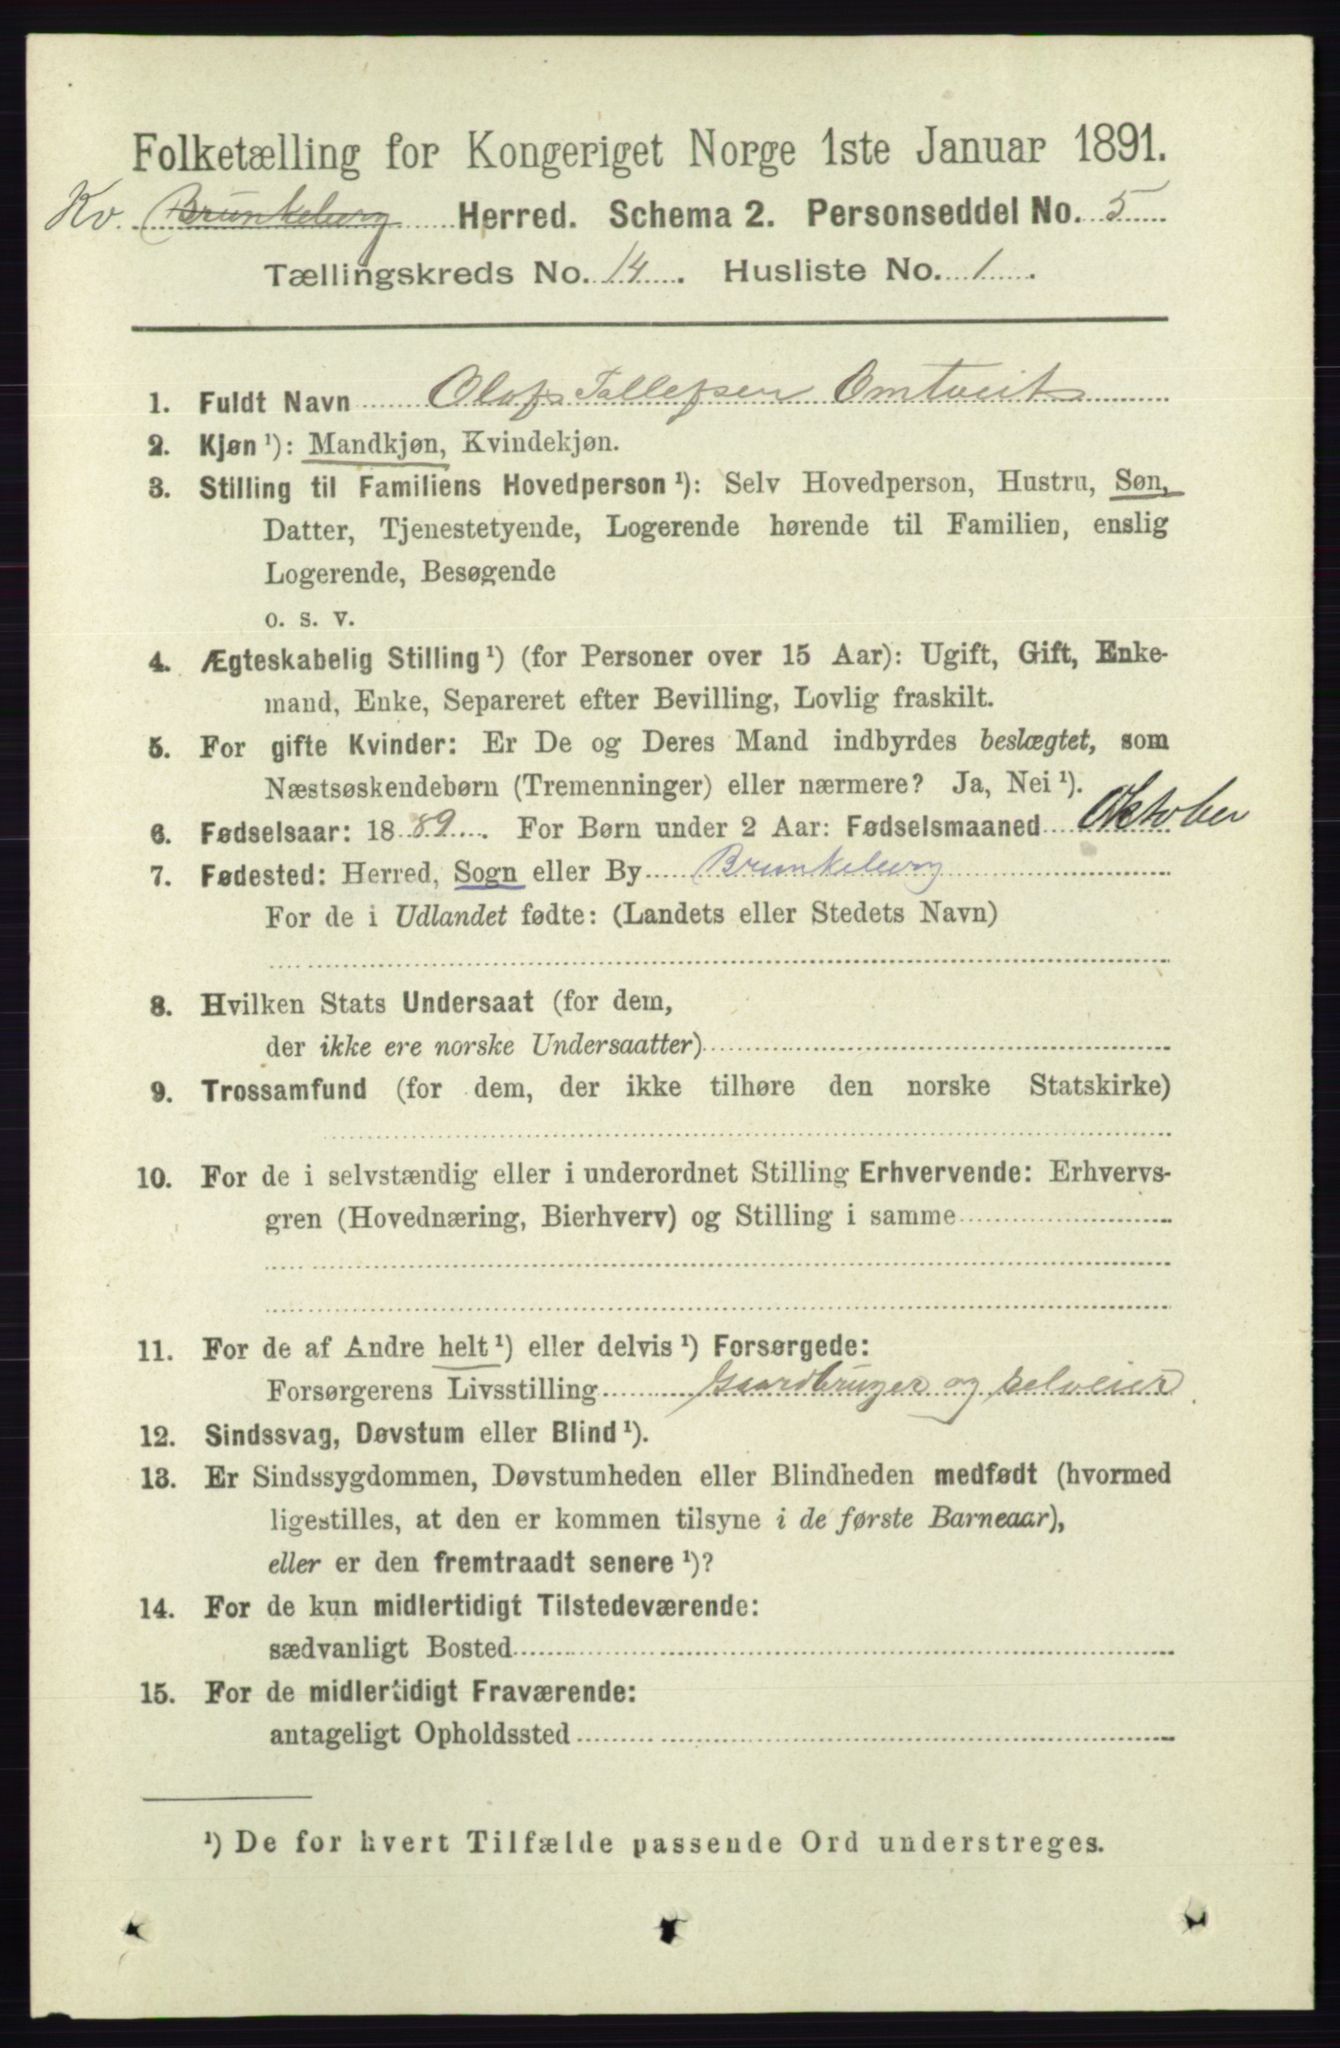 Folketælling for Kongeriget Norge 1ste Januar 1891.
Kv. Brunkeberg Herred. Schema 2. Personseddel No. 5
Tællingskreds No. 14. Husliste No. 1.
1. Fuldt Navn Olof Tallefsen Omtveit
2. Kjøn ¹): Mandkjøn, Kvindekjøn.
3. Stilling til Familiens Hovedperson ¹): Selv Hovedperson, Hustru, Søn,
Datter, Tjenestetyende, Logerende hørende til Familien, enslig
Logerende, Besøgende
o. s. v.
4. Ægteskabelig Stilling ¹) (for Personer over 15 Aar): Ugift, Gift, Enke-
mand, Enke, Separeret efter Bevilling, Lovlig fraskilt.
5. For gifte Kvinder: Er De og Deres Mand indbyrdes beslægtet, som
Næstsøskendebørn (Tremenninger) eller nærmere? Ja, Nei ¹).
6. Fødselsaar: 1889. For Børn under 2 Aar: Fødselsmaaned Oktober
7. Fødested: Herred, Sogn eller By Brunkeberg
For de i Udlandet fødte: (Landets eller Stedets Navn)
8. Hvilken Stats Undersaat (for dem,
der ikke ere norske Undersaatter)
9. Trossamfund (for dem, der ikke tilhøre den norske Statskirke)
10. For de i selvstændig eller i underordnet Stilling Erhvervende: Erhvervs-
gren (Hovednæring, Bierhverv) og Stilling i samme
11. For de af Andre helt ¹) eller delvis ¹) Forsørgede:
Forsørgerens Livsstilling Gaardbruger og selveier
12. Sindssvag, Døvstum eller Blind ¹).
13. Er Sindssygdommen, Døvstumheden eller Blindheden medfødt (hvormed
ligestilles, at den er kommen tilsyne i de første Barneaar),
eller er den fremtraadt senere ¹)?
14. For de kun midlertidigt Tilstedeværende:
sædvanligt Bosted
15. For de midlertidigt Fraværende:
antageligt Opholdssted
¹) De for hvert Tilfælde passende Ord understreges.